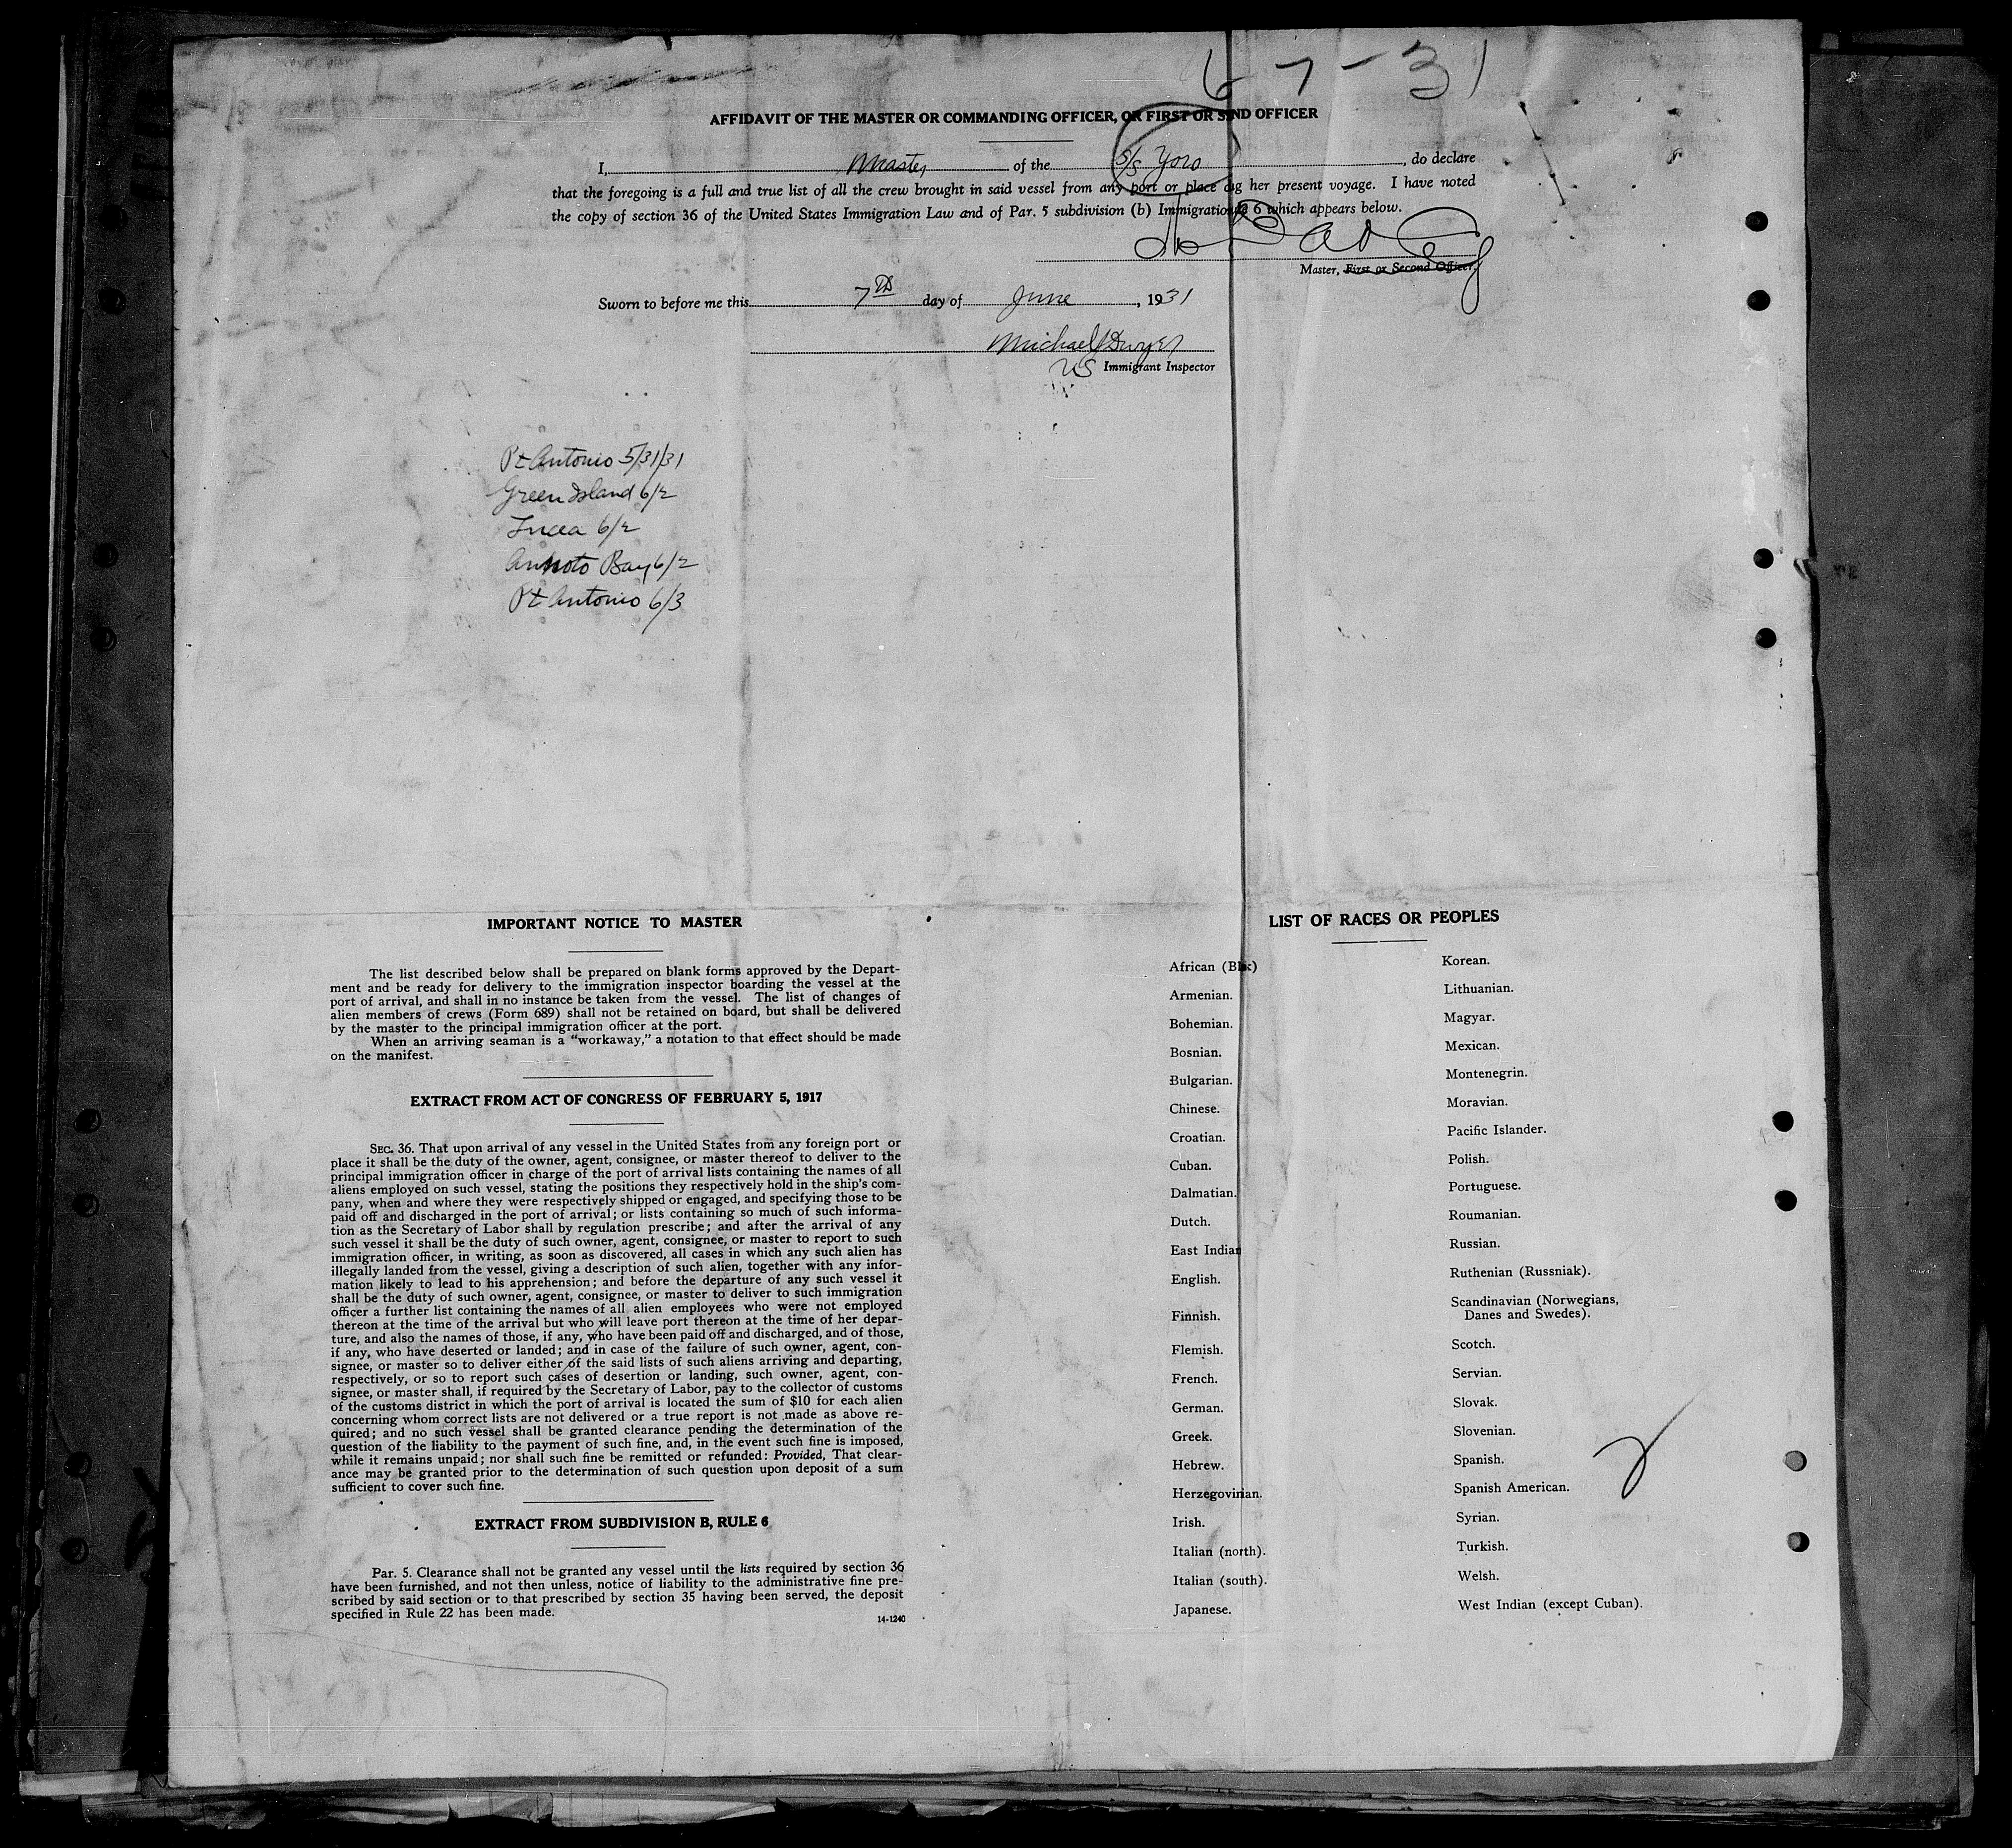 6-7-31
AFFIDAVIT OF THE MASTER OR COMMANDING OFFICER, OR FIRST OR S ND OFFICER
I, Master of the S/S Yoro, do declare
that the foregoing is a full and true list of all the crew brought in said vessel from any port or place g her present voyage. I have noted
the copy of section 36 of the United States Immigration Law and of Par. 5 subdivision (b) Immigration 6 which appears below.
Master, First or Second Officer.
Sworn to before me this 7th day of June, 1931
Michael J Dwyer
US Immigrant Inspector
Pt Antonio 5/31/31
Green Island 6/2
Lucea 6/2
Annoto Bay 6/2
Pt Antonio 6/3
IMPORTANT NOTICE TO MASTER
The list described below shall be prepared on blank forms approved by the Depart-
ment and be ready for delivery to the immigration inspector boarding the vessel at the
port of arrival, and shall in no instance be taken from the vessel. The list of changes of
alien members of crews (Form 689) shall not be retained on board, but shall be delivered
by the master to the principal immigration officer at the port.
When an arriving seaman is a "workaway," a notation to that effect should be made
on the manifest.
EXTRACT FROM ACT OF CONGRESS OF FEBRUARY 5, 1917
SEC. 36. That upon arrival of any vessel in the United States from any foreign port or
place it shall be the duty of the owner, agent, consignee, or master thereof to deliver to the
principal immigration officer in charge of the port of arrival lists containing the names of all
aliens employed on such vessel, stating the positions they respectively hold in the ship's com-
pany, when and where they were respectively shipped or engaged, and specifying those to be
paid off and discharged in the port of arrival; or lists containing so much of such informa-
tion as the Secretary of Labor shall by regulation prescribe; and after the arrival of any
such vessel it shall be the duty of such owner, agent, consignee, or master to report to such
immigration officer, in writing, as soon as discovered, all cases in which any such alien has
illegally landed from the vessel, giving a description of such alien, together with any infor-
mation likely to lead to his apprehension; and before the departure of any such vessel it
shall be the duty of such owner, agent, consignee, or master to deliver to such immigration
officer a further list containing the names of all alien employees who were not employed
thereon at the time of the arrival but who will leave port thereon at the time of her depar-
ture, and also the names of those, if any, who have been paid off and discharged, and of those,
if any, who have deserted or landed; and in case of the failure of such owner, agent, con-
signee, or master so to deliver either of the said lists of such aliens arriving and departing,
respectively, or so to report such cases of desertion or landing, such owner, agent, con-
signee, or master shall, if required by the Secretary of Labor, pay to the collector of customs
of the customs district in which the port of arrival is located the sum of $10 for each alien
concerning whom correct lists are not delivered or a true report is not made as above re-
quired; and no such vessel shall be granted clearance pending the determination of the
question of the liability to the payment of such fine, and, in the event such fine is imposed,
while it remains unpaid; nor shall such fine be remitted or refunded: Provided, That clear-
ance may be granted prior to the determination of such question upon deposit of a sum
sufficient to cover such fine.
EXTRACT FROM SUBDIVISION B, RULE 6
Par. 5. Clearance shall not be granted any vessel until the lists required by section 36
have been furnished, and not then unless, notice of liability to the administrative fine pre-
scribed by said section or to that prescribed by section 35 having been served, the deposit
specified in Rule 22 has been made.
14-1240
LIST OF RACES OR PEOPLES
African (Bl k)
Armenian.
Bohemian.
Bosnian.
Bulgarian.
Chinese.
Croatian.
Cuban.
Dalmatian.
Dutch.
East Indian
English.
Finnish.
Flemish.
French.
German.
Greek.
Hebrew.
Herzegovinian.
Irish.
Italian (north).
Italian (south).
Japanese.
Korean.
Lithuanian.
Magyar.
Mexican.
Montenegrin.
Moravian.
Pacific Islander.
Polish.
Portuguese.
Roumanian.
Russian.
Ruthenian (Russniak).
Scandinavian (Norwegians,
Danes and Swedes).
Scotch.
Servian.
Slovak.
Slovenian.
Spanish.
Spanish American.
Syrian.
Turkish.
Welsh.
West Indian (except Cuban).